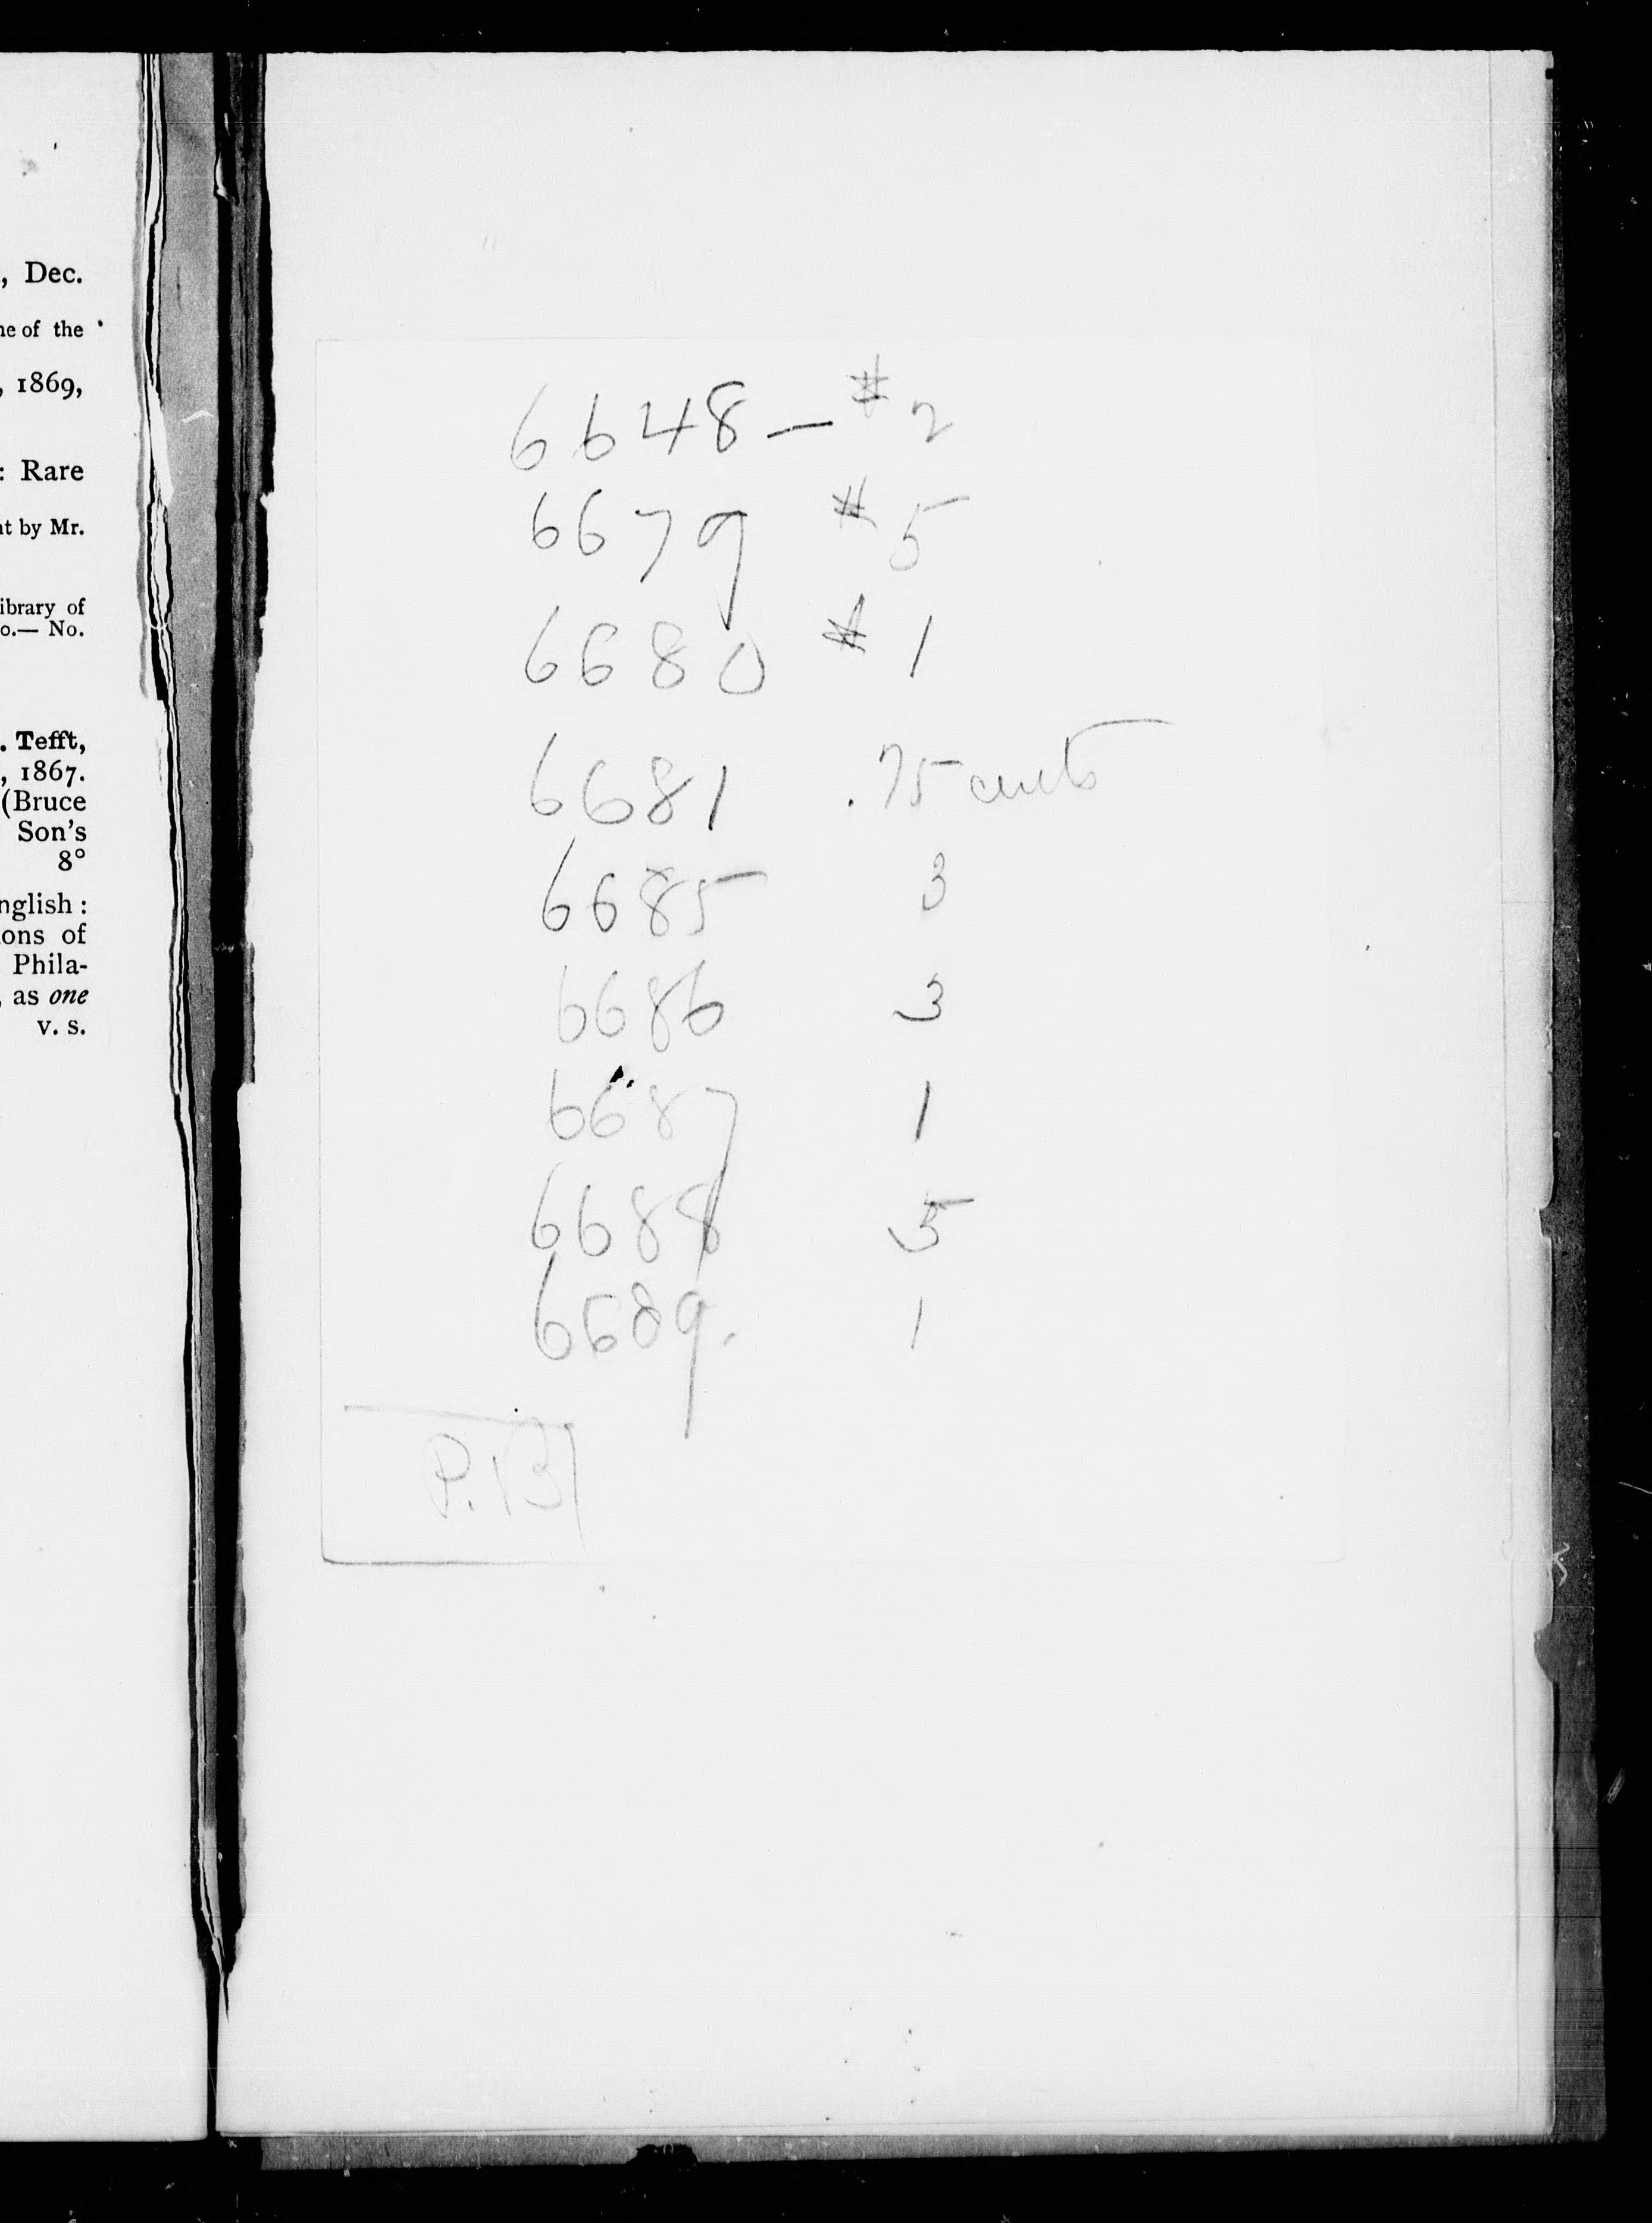 , Dec.
ne of the
, 1869,
: Rare
nt by Mr.
ibrary of
o.— No.
. Tefft,
, 1867.
(Bruce
Son's
8°
nglish :
ions of
Phila-
, as one
v. s.
6648 — $ 2
6679 $ 5
6680 $ 1
6681 .75 cents
6685 3
6686 3
6687 1
6688 5
6689. 1
P. 131